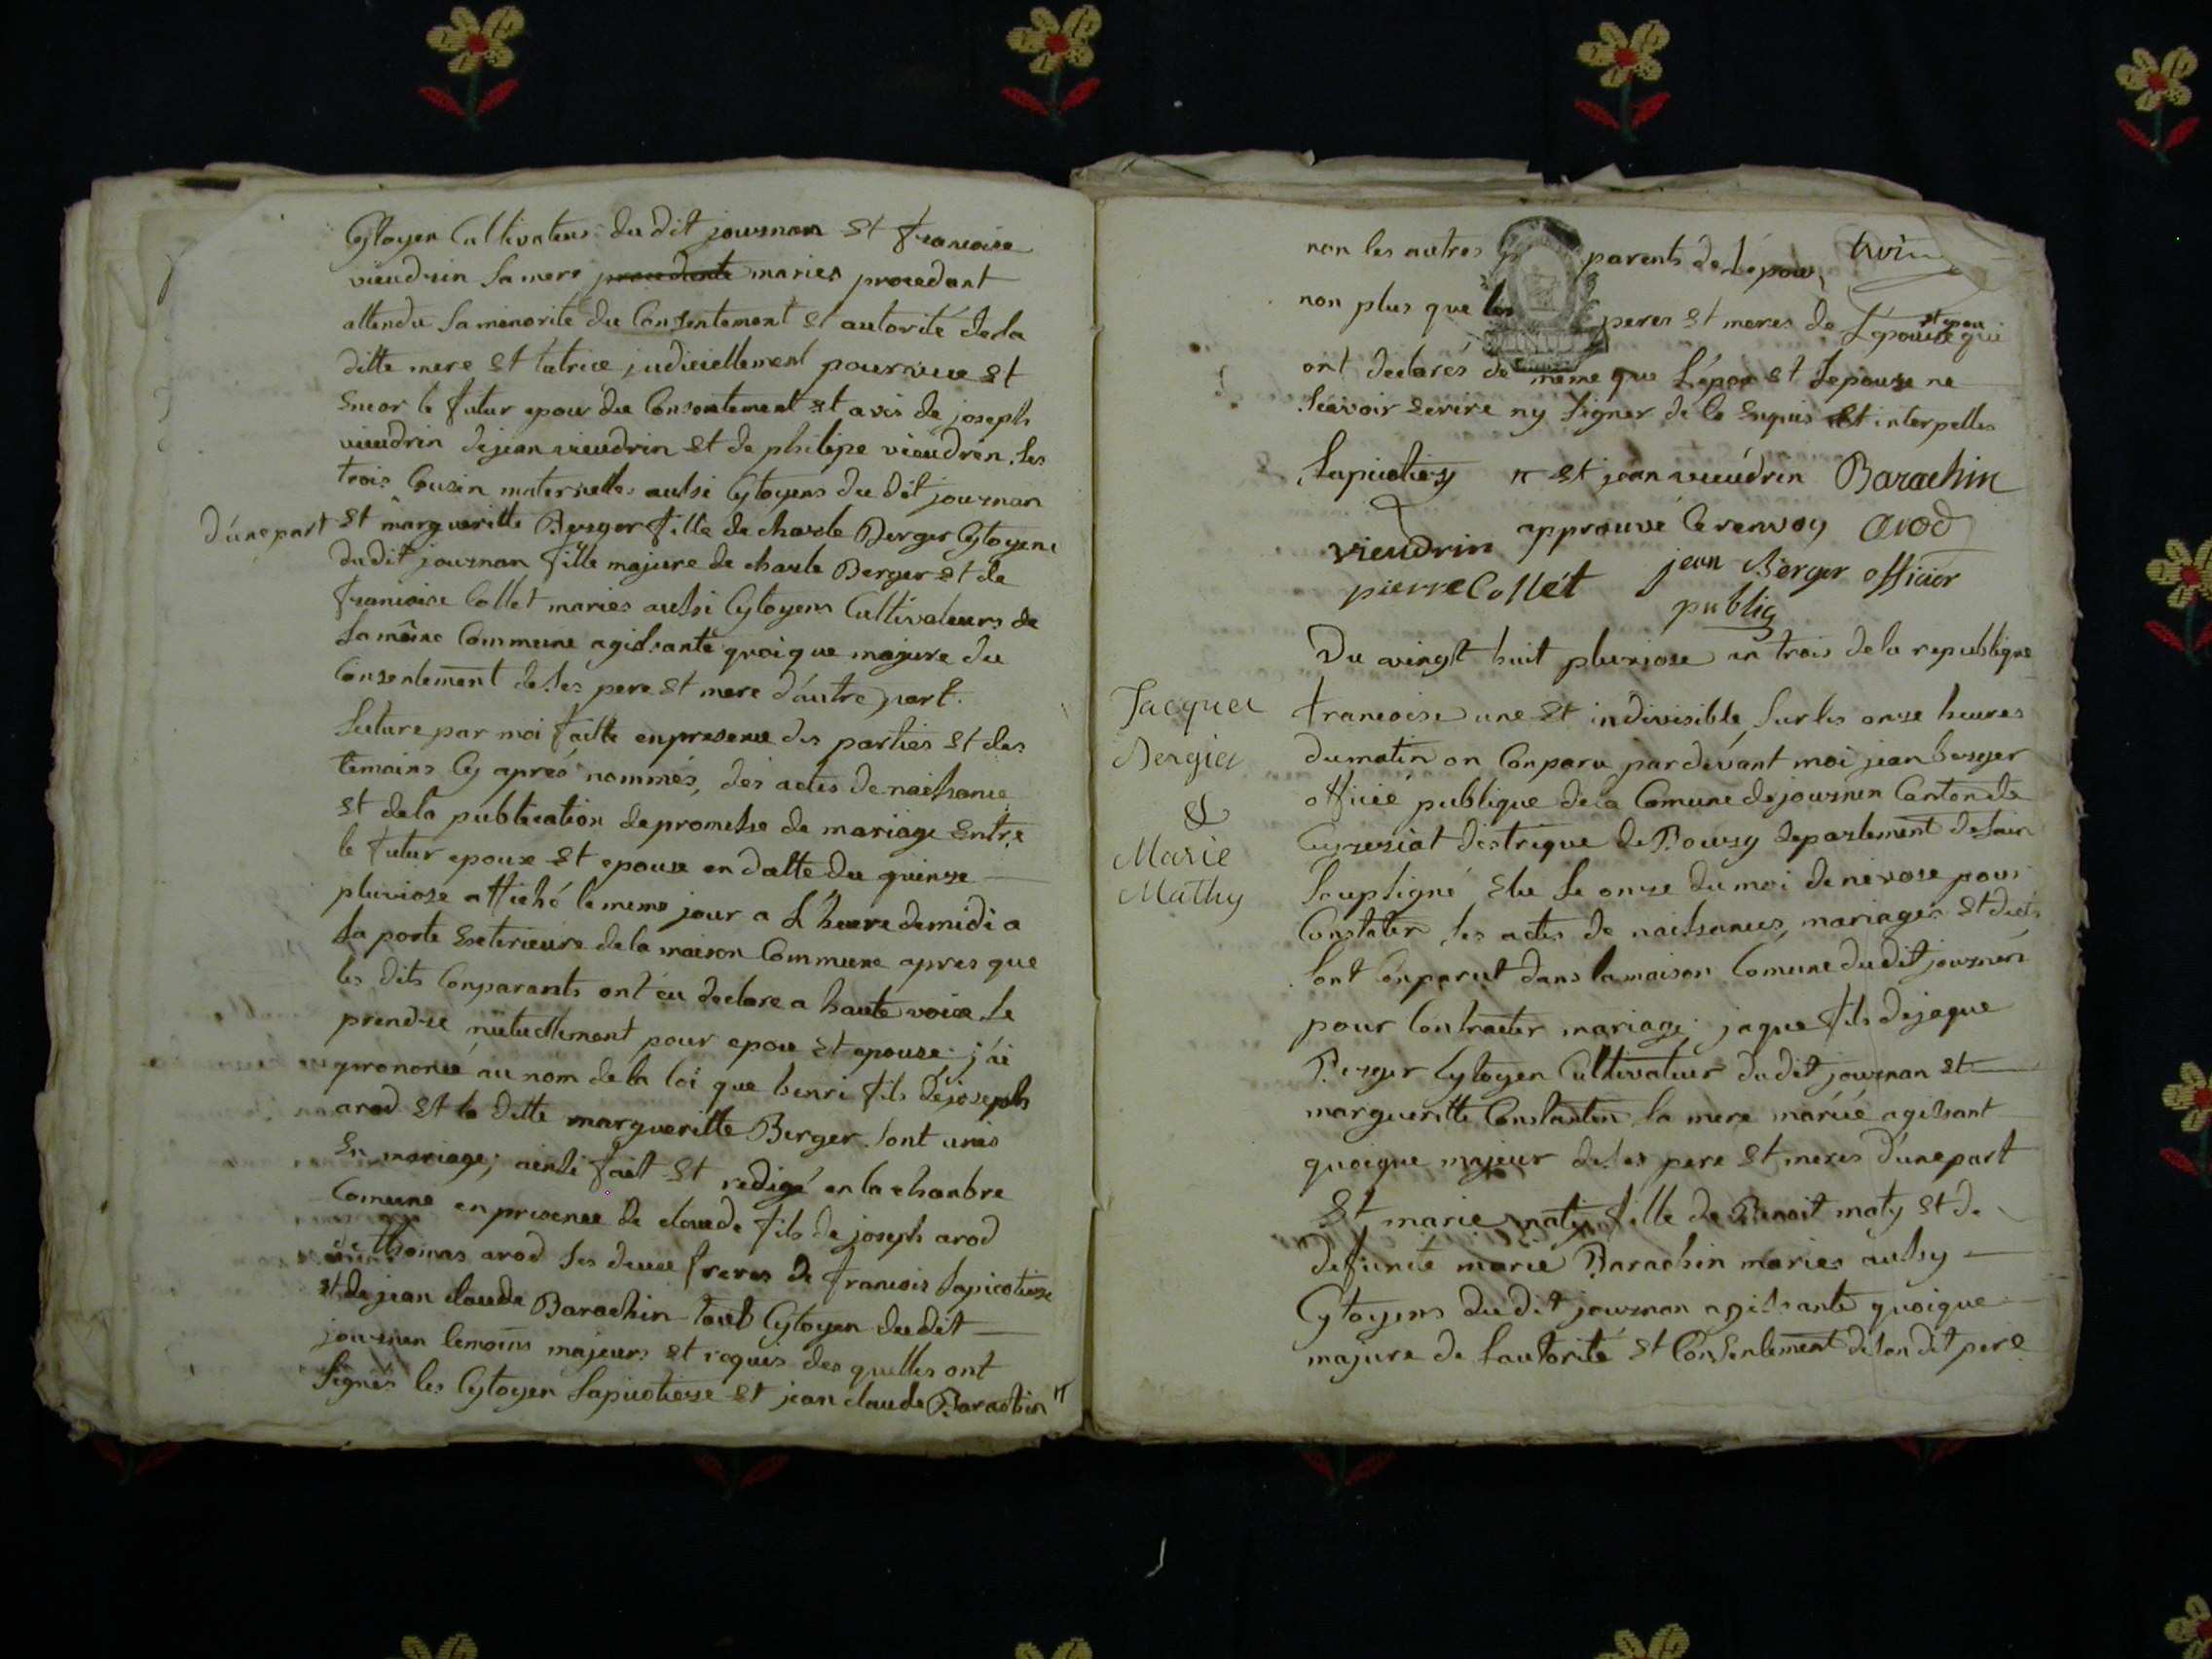 Cytoyen Cultivateurs du dit journan et francoise
vieudrin sa mere procedante mariés procedant
attendu sa menorité du Consentement et autorité de la
ditte mere et tutrice judiciellement pourvuee et
encor le futur epour du Consentement et avis de joseph
vieudrin de jean vieudrin et de philipe vieudrin. les
trois Cousin maternelles aussi Cytoyens du dit journan
d'une part
et margueritte Berger fille de charle Berger Cytoyene
du dit journan fille majure de charle Berger et de
francoise Collet mariés aussi Cytoyens Cultivateurs de
la même Commune agissante quoique majure du
Consentement de ses pere et mere d'autre part.
Lecture par moi faitte en presence des parties et des
temoins Cy aprés nommés, des actes de naissance
et de la publication de promesse de mariage entre
le futur epoux et epouse en datte du quinze
pluviose affiché le meme jour a L'heure de midi a
la porte exterieure de la maison Commune apres que
les dits Conparants ont éu declare a haute voix se
prendre mutuellement pour epou et epouse j'ai
prononcé au nom de la loi que henri fils de joseph
arod et la ditte margueritte Berger sont unis
En mariage; ainsi fait et redigé en la chanbre
Comune en presence de claude fils de joseph arod
de thomas arod ses deux freres de francois Lapicotiere
et de jean claude Barachin tout Cytoyen du dit
journan temoins majeurs et requis des quelles ont
signés les Cytoyen Lapicotiere et jean claude Barachin
non les autres parents de L'epoux
non plus que les peres et meres de L'epouse et epou qui
ont declarés de meme que L'epou et Lepouse ne
scavoir ecrire ny signer de le enquis et interpelles
Lapicotiery et jean vieudrin Barachin
vieudrin approuvé le renvoy arod
pierre Collét jean Berger officier
public
Du vingt huit pluviose an trois de la republique
Jacques
Bergier
&
Marie
Mathy
francoise une et indivisible, sur les onze heures
du matin on Conparu par dévant moi jean berger
officié publique de la Comune de journan Canton de
Ceyzeriat distrique de Bourg departement de l'ain
soussigné elu le onze du moi de nevose pour
Constater les actes de naissances, mariages et decés
sont Conparut dans la maison Comune du dit journan
pour Contracter mariage, jaque fils de jaque
Berger Cytoyen Cultivateur du dit journan et
margueritte Constantin sa mere mariée agissant
quoique majeur de ses pere et meres d'une part
Et marie maty fille de Benoit maty et de
defunté marie Barachin mariés aussy
Cytoyens du dit journan agissante quoique
majure de Lautorité et Consentement de son dit pere